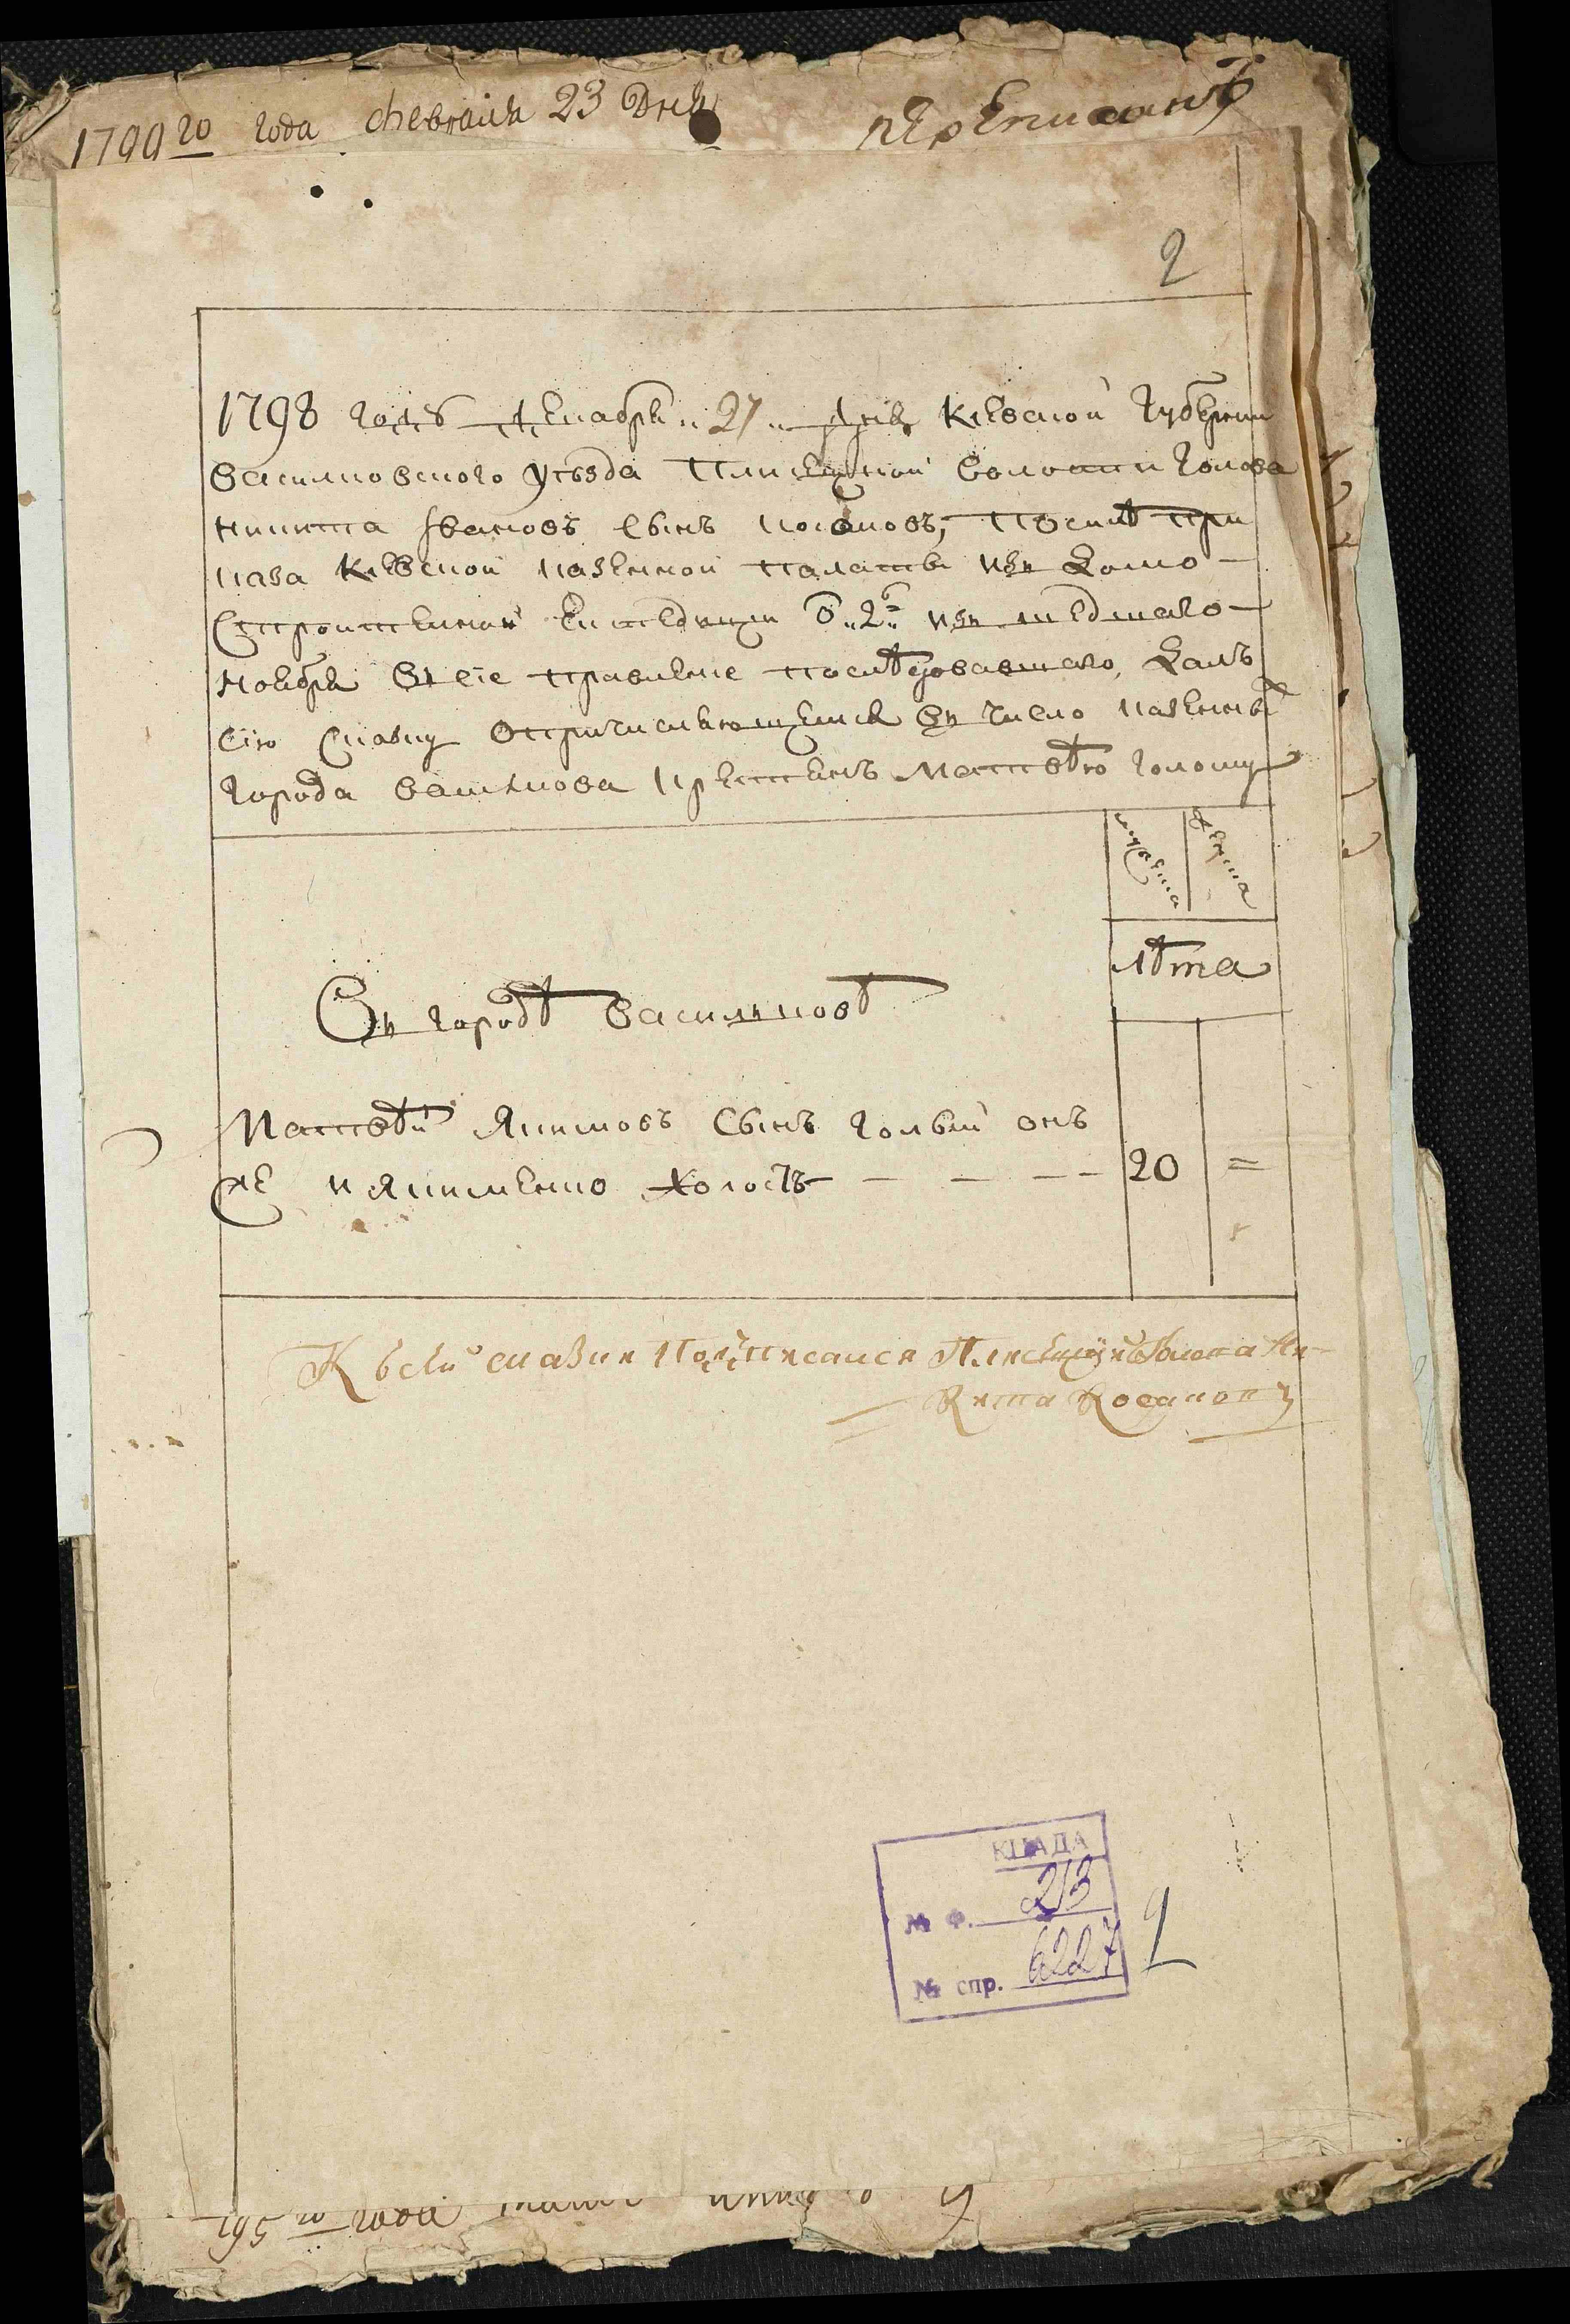 1799го года февраля 23 Дня
2
1798 года декабря 27 дня Киевской губернии
василковского уезда Плисецкой волости голова
никита Ивановъ сынъ посилѣ при
каза Киевской казенной палаты изъ Домо-
строителной Експедиции изъ шедшаго
ноября въ сіе правление послѣдовавшаго, Далъ
сію сказку о причисляющемся въ число казенныхъ
города василкова крестянъ Матвѣю голому
мужеска
женска
лѣта
Въ городѣ василковѣ
Матвѣй Якимовъ сынъ голый онъ
же и Якименко холостъ
20 =
К сей сказки Подписался Плисецкий Голова Ни-
кита
КЦАДА
№ Ф. 213
№ спр. 6227
2
195го года